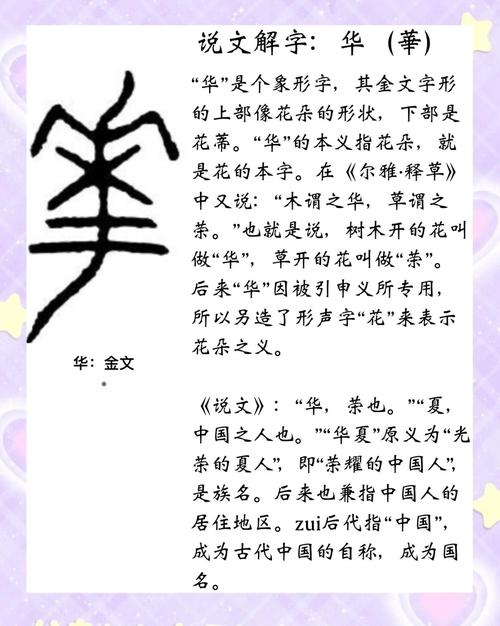 说文解字：华 （華）
“华”是个象形字，其金文字形
的上部像花朵的形状，下部是
花蒂。“华”的本义指花朵，就
是花的本字。在《尔雅·释草》
中又说：“木谓之华，草谓之
荣。”也就是说，树木开的花叫
做“华”，草开的花叫做“荣”。
后来“华”因被引申义所专用，
所以另造了形声字“花”来表示
花朵之义。
华：金文
《说文》：“华，荣也。”“夏，
中国之人也。”“华夏”原义为“光
荣的夏人”，即“荣耀的中国人”，
是族名。后来也兼指中国人的
居住地区。zui后代指“中国”，
成为古代中国的自称，成为国
名。